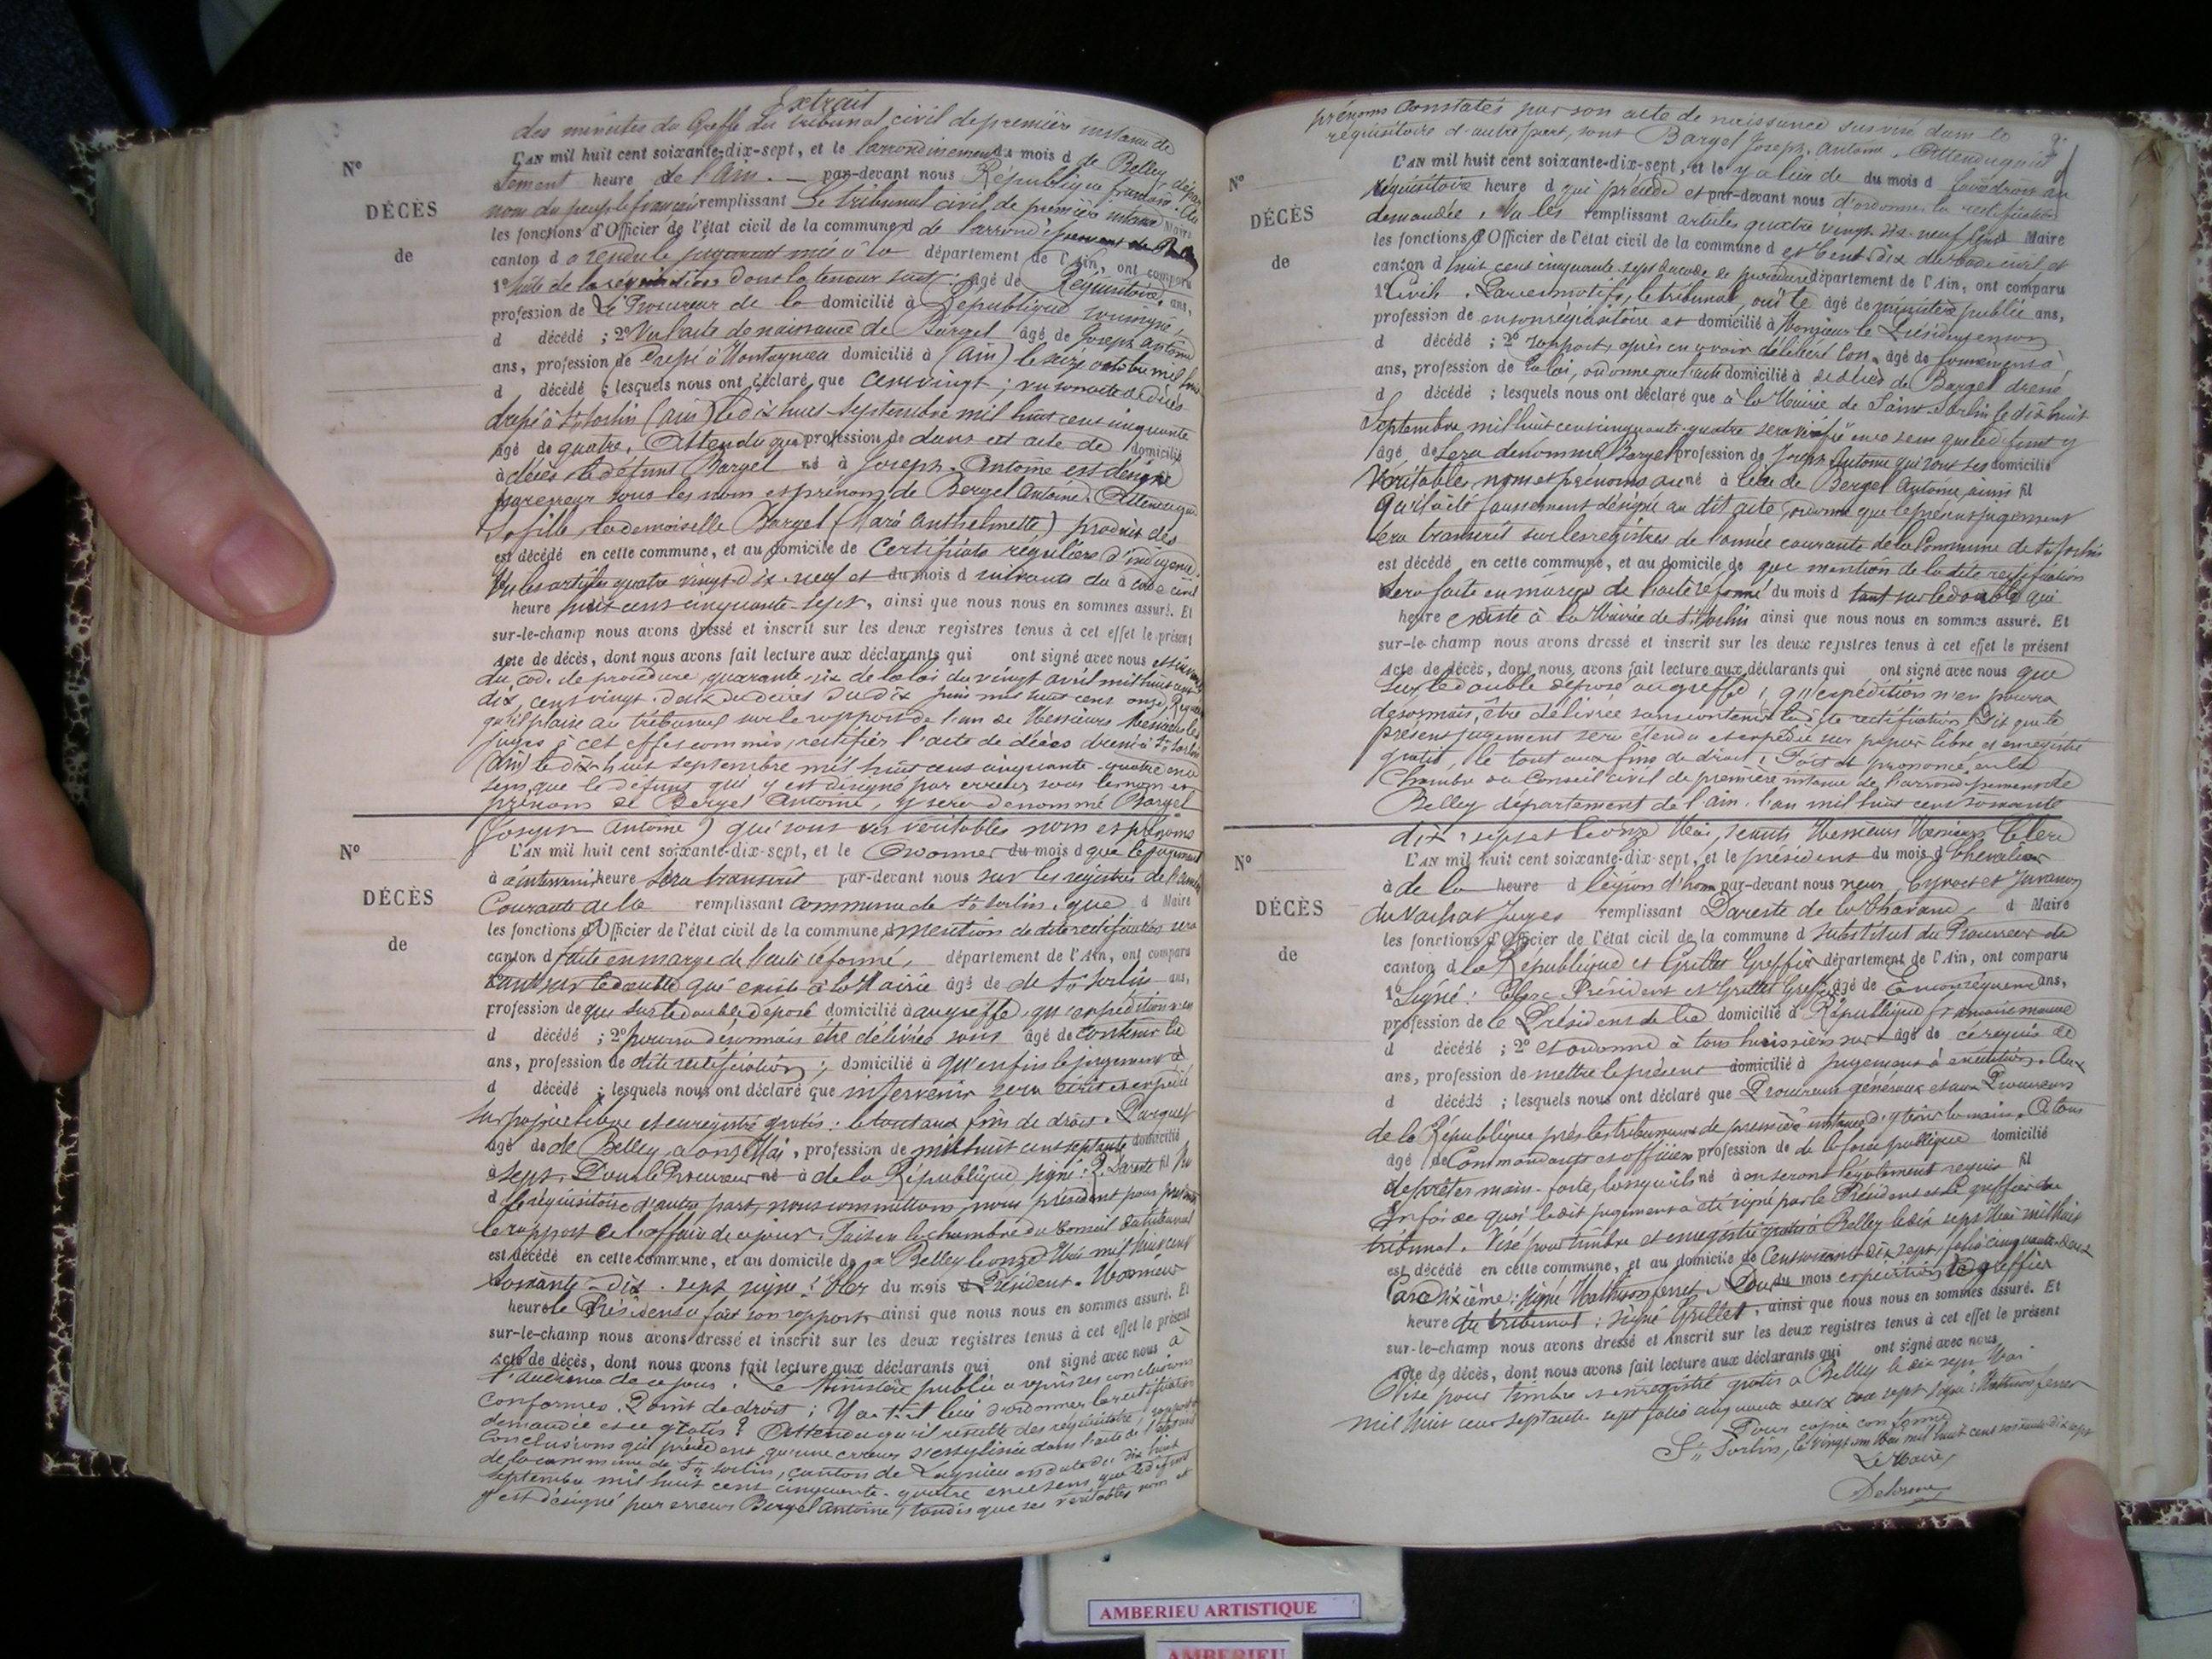 Extrait
des minutes du Greffe du tribunal civil de première instance de
L'AN mil huit cent soixante-dix-sept, et le l'arrondissement du mois d de Belley, dépar
Nº
tement heure de l'Ain. — par-devant nous République française. Au
DÉCÈS
nom du peuple français remplissant Le tribunal civil de première instance Maire
les fonctions d'Officier de l'état civil de la commune d de l'arrondissement de Belley
de
canton d a rendu le jugement mis à la département de l'Ain, ont comparu
1º suite de la réquisition dont la teneur suit: âgé de Réquisitoire, ans,
profession de Le Procureur de la domicilié à République soussigné;
d décédé ; 2º Vu l'acte de naissance de Bargel âgé de Joseph Antoine
ans, profession de Drepé à Montagnieu domicilié à (Ain) le seize octobre mil huit
d décédé ; lesquels nous ont déclaré que cent vingt; vu son acte de décès
drepé à St Sorlin (Ain) le dix huit Septembre mil huit cent cinquante
âgé de quatre. Attendu que profession de dans cet acte de domicilié
à décès le défunt Bargel né à Joseph-Antoine est désigné
par erreur sous les nom et prénom de Bergel Antoine. Attendu que
sa fille, la demoiselle Bargel (Marie Anthelmette) produit des
est décédé en cette commune, et au domicile de certificats réguliers d'indigence,
Vu les articles quatre vingt-dix-neuf et du mois d suivants du à code civil
heure huit cent cinquante-sept, ainsi que nous nous en sommes assuré. Et
sur-le-champ nous avons dressé et inscrit sur les deux registres tenus à cet effet le présent
Acte de décès, dont nous avons fait lecture aux déclarants qui ont signé avec nous et suivants
du code de procédure, quarante-six de la loi du vingt avril mil huit cent
dix, cent vingt-deux du décret du dix juin mil huit cent onze, Requiert
qu'il plaise au tribunal sur le rapport de l'un de Messieurs Messieurs les
juges à cet effet commis, rectifier l'acte de décès dressé à St Sorlin
(Ain) le dix-huit septembre mil huit cent cinquante-quatre en ce
sens que le défunt qui y est désigné par erreur sous les nom et
prénom de Bergel Antoine, y sera dénommé Bargel
(Joseph Antoine) qui sont ses véritables nom et prénoms
L'AN mil huit cent soixante-dix-sept, et le Ordonner du mois d que le jugement
Nº
à à intervenir heure sera transcrit par-devant nous sur les registres de l'année
DÉCÈS
Courante de la remplissant commune de St Sorlin, que d Maire
les fonctions d'Officier de l'état civil de la commune d mention de dite rectification sera
de
canton d faite en marge de l'acte réformé, département de l'Ain, ont comparu
tant sur le double qui existe à la Mairie âgé de de St Sorlin ans,
profession de que sur le double déposé domicilié à au greffe, qu'expédition n'en
d décédé ; 2º pourra désormais être délivrée sans âgé de contenir la
ans, profession de dite rectification; domicilié à qu'enfin le jugement à
d décédé ; lesquels nous ont déclaré que intervenir sera écrit et expédié
sur papier libre et enregistré gratis: le tout aux fins de droit. Parquet
âgé de de Belley, ce onze Mai, profession de mil huit cent septante domicilié
à sept. Pour le Procureur né à de la République signé: P. Dareste fil Vu
d le réquisitoire d'autre part, nous commettons, nous président pour faire
le rapport de l'affaire de ce jour. Fait en la chambre du Conseil du tribunal
est décédé en cette commune, et au domicile de à Belley le onze Mai mil huit cent
soixante-dix-sept signé: Clerc du mois d Président. Monsieur
heure le Président a fait son rapport ainsi que nous nous en sommes assuré. Et
sur-le-champ nous avons dressé et inscrit sur les deux registres tenus à cet effet le présent
Acte de décès, dont nous avons fait lecture aux déclarants qui ont signé avec nous à
l'audience de ce jour. Le Ministère public a repris ses conclusions
conformes. Point de droit; Y a-t-il lieu d'ordonner la rectification
demandée et ce gratis? Attendu qu'il résulte des réquisitoire, rapport
Conclusions qui précèdent, qu'une erreur s'est glissée dans l'acte de l'état civil
de la commune de St Sorlin, canton de Lagnieu en date du dix huit
septembre mil huit cent cinquante-quatre en ce sens que le défunt
y est désigné par erreur Bergel Antoine, tandis que ses véritables nom et
prénoms constatés par son acte de naissance sus visé dans le
réquisitoire d'autre part, sont Bargel Joseph, Antoine. Attendu qu'il
L'AN mil huit cent soixante-dix-sept, et le y a lieu de du mois d faire droit au
Nº
réquisitoire heure d qui précède et par-devant nous d'ordonner la rectification
DÉCÈS
demandée, Vu les remplissant articles quatre vingt-dix-neuf d Maire
les fonctions d'Officier de l'état civil de la commune d et Cent dix du code civil et
de
canton d huit cent cinquante-sept du code de procédure département de l'Ain, ont comparu
1º Civile. Par ces motifs, le tribunal, ouï le âgé de ministère public ans,
profession de en son réquisitoire et domicilié à Monsieur le Président en son
d décédé ; 2º rapport, après en avoir délibéré con âgé de formément à
ans, profession de la loi, ordonne que l'acte domicilié à de décès de Bargel dressé
d décédé ; lesquels nous ont déclaré que à la Mairie de Saint-Sorlin le dix huit
Septembre mil huit cent cinquante-quatre sera rectifié en ce sens que le défunt y
âgé de sera dénommé Bargel profession de Joseph Antoine qui sont ses domicilié
véritables nom et prénoms au né à lieu de Bergel Antoine, ainsi fil
qu'il a été faussement désigné au dit acte, ordonne que le présent jugement
sera transcrit sur les registres de l'année courante de la Commune de St Sorlin
est décédé en cette commune, et au domicile de que mention de la dite rectification
sera faite en marge de l'acte réformé du mois d tant sur le double qui
heure existe à la Mairie de St Sorlin ainsi que nous nous en sommes assuré. Et
sur-le-champ nous avons dressé et inscrit sur les deux registres tenus à cet effet le présent
Acte de décès, dont nous avons fait lecture aux déclarants qui ont signé avec nous que
sur le double déposé au greffe, qu'expédition n'en pourra
désormais, être délivrée sans contenir la dite rectification, Dit que le
présent jugement sera étendu et expédié sur papier libre et enregistré
gratis, le tout aux fins de droit; Fait et prononcé en la
Chambre du Conseil civil de première instance de l'arrondissement de
Belley département de l'Ain, l'an mil huit cent soixante
dix-sept et le onze Mai, séants Messieurs Messieurs Clerc
L'AN mil huit cent soixante-dix-sept, et le président du mois d Chevalier
Nº
à de la heure d légion d'hon par-devant nous neur, Cyvoct et Juvanon
DÉCÈS
du Vachat Juges remplissant Dareste de la Chavanne, d Maire
les fonctions d'Officier de l'état civil de la commune d substitut du Procureur de
de
canton d la République et Grillet Greffier département de l'Ain, ont comparu
1º Signé: Clerc Président et Grillet Greffier âgé de En conséquence ans,
profession de le Président de la domicilié à République française mande
d décédé ; 2º et ordonne à tous huissiers sur âgé de ce requis de
ans, profession de mettre le présent domicilié à jugement à exécution. Aux
d décédé ; lesquels nous ont déclaré que Procureurs généraux et aux Procureurs
de la République près les tribunaux de première instance d'y tenir la main. A tous
âgé de Commandants et officiers profession de de la force publique domicilié
de prêter main-forte, lorsqu'ils né à en seront légalement requis fil
En foi de quoi le dit jugement a été signé par le Président et le greffier du
tribunal. Visé pour timbre et enregistré gratis à Belley le dix sept Mai mil huit
est décédé en cette commune, et au domicile de cent soixante dix sept, folio cinquante-deux
Case sixième: signé Mathieu ferret. Pour du mois expédition le greffier
heure du tribunal: signé Grillet, ainsi que nous nous en sommes assuré. Et
sur-le-champ nous avons dressé et inscrit sur les deux registres tenus à cet effet le présent
Acte de décès, dont nous avons fait lecture aux déclarants qui ont signé avec nous
Visé pour timbre et enregistré gratis à Belley le dix sept Mai
mil huit cent septante sept folio cinquante deux case sept signé:
Pour copie conforme
St Sorlin, le vingt un Mai mil huit cent soixante dix sept
Le Maire,
AMBERIEU ARTISTIQUE
AMBERIEU